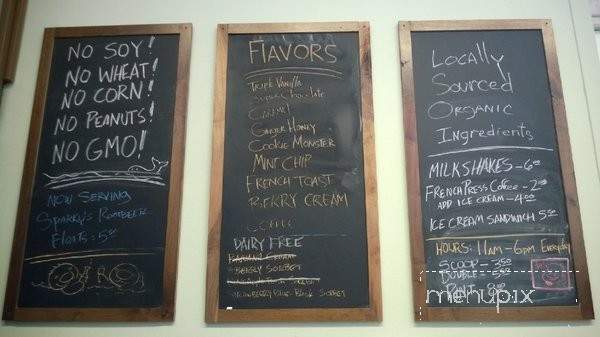 NO SOY!
NO WHEAT!
NO CORN!
NO PEANUTS!
NO GMO!
NOW SERVING
Sparky's Rootbeer
Floats: 5.00
FLAVORS
TRIPLE Vanilla
Super Chocolate
CARAMEL
Ginger Honey
COOKIE MONSTER
MINT CHIP
FRENCH TOAST
B.F.KRY CREAM
COFFEE
DAIRY FREE
SORBET
SORBET
Locally
Sourced
ORGANIC
Ingredients
MILKSHAKES - 6.00
FRENCH PRESS Coffee - 2.00
ADD ICE CREAM - 4.00
ICE CREAM SANDWICH 5.00
HOURS: 11AM - 6PM Everyday
SCOOP - 3.50
DOUBLE - 5.00
PINT - 8.00
menupix